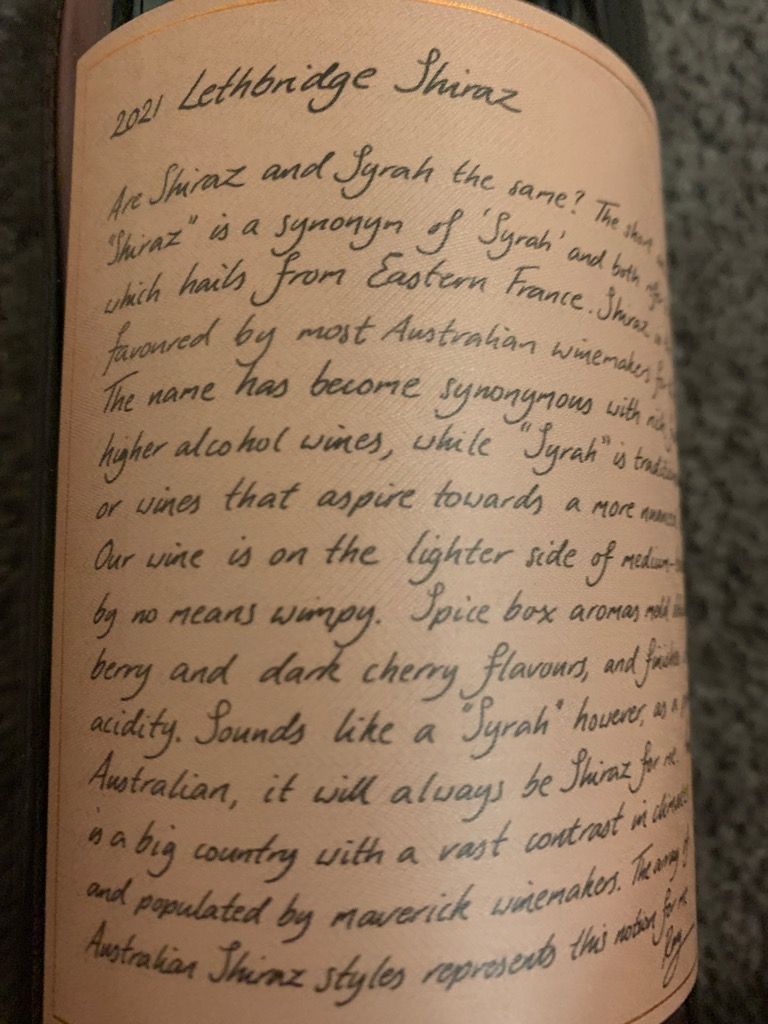 2021 Lethbridge Shiraz
Are Shiraz and Syrah the same? The short
"Shiraz" is a synonym of 'Syrah' and both
which hails from Eastern France. Shiraz
favoured by most Australian winemakers
The name has become synonymous with
higher alcohol wines, while "Syrah" is
or wines that aspire towards a more
Our wine is on the lighter side of
by no means wimpy. Spice box aromas meld
berry and dark cherry flavours, and
acidity. Sounds like a "Syrah" however, as a
Australian, it will always be Shiraz for me.
is a big country with a vast contrast in
and populated by maverick winemakers. The array of
Australian Shiraz styles represents this notion for me